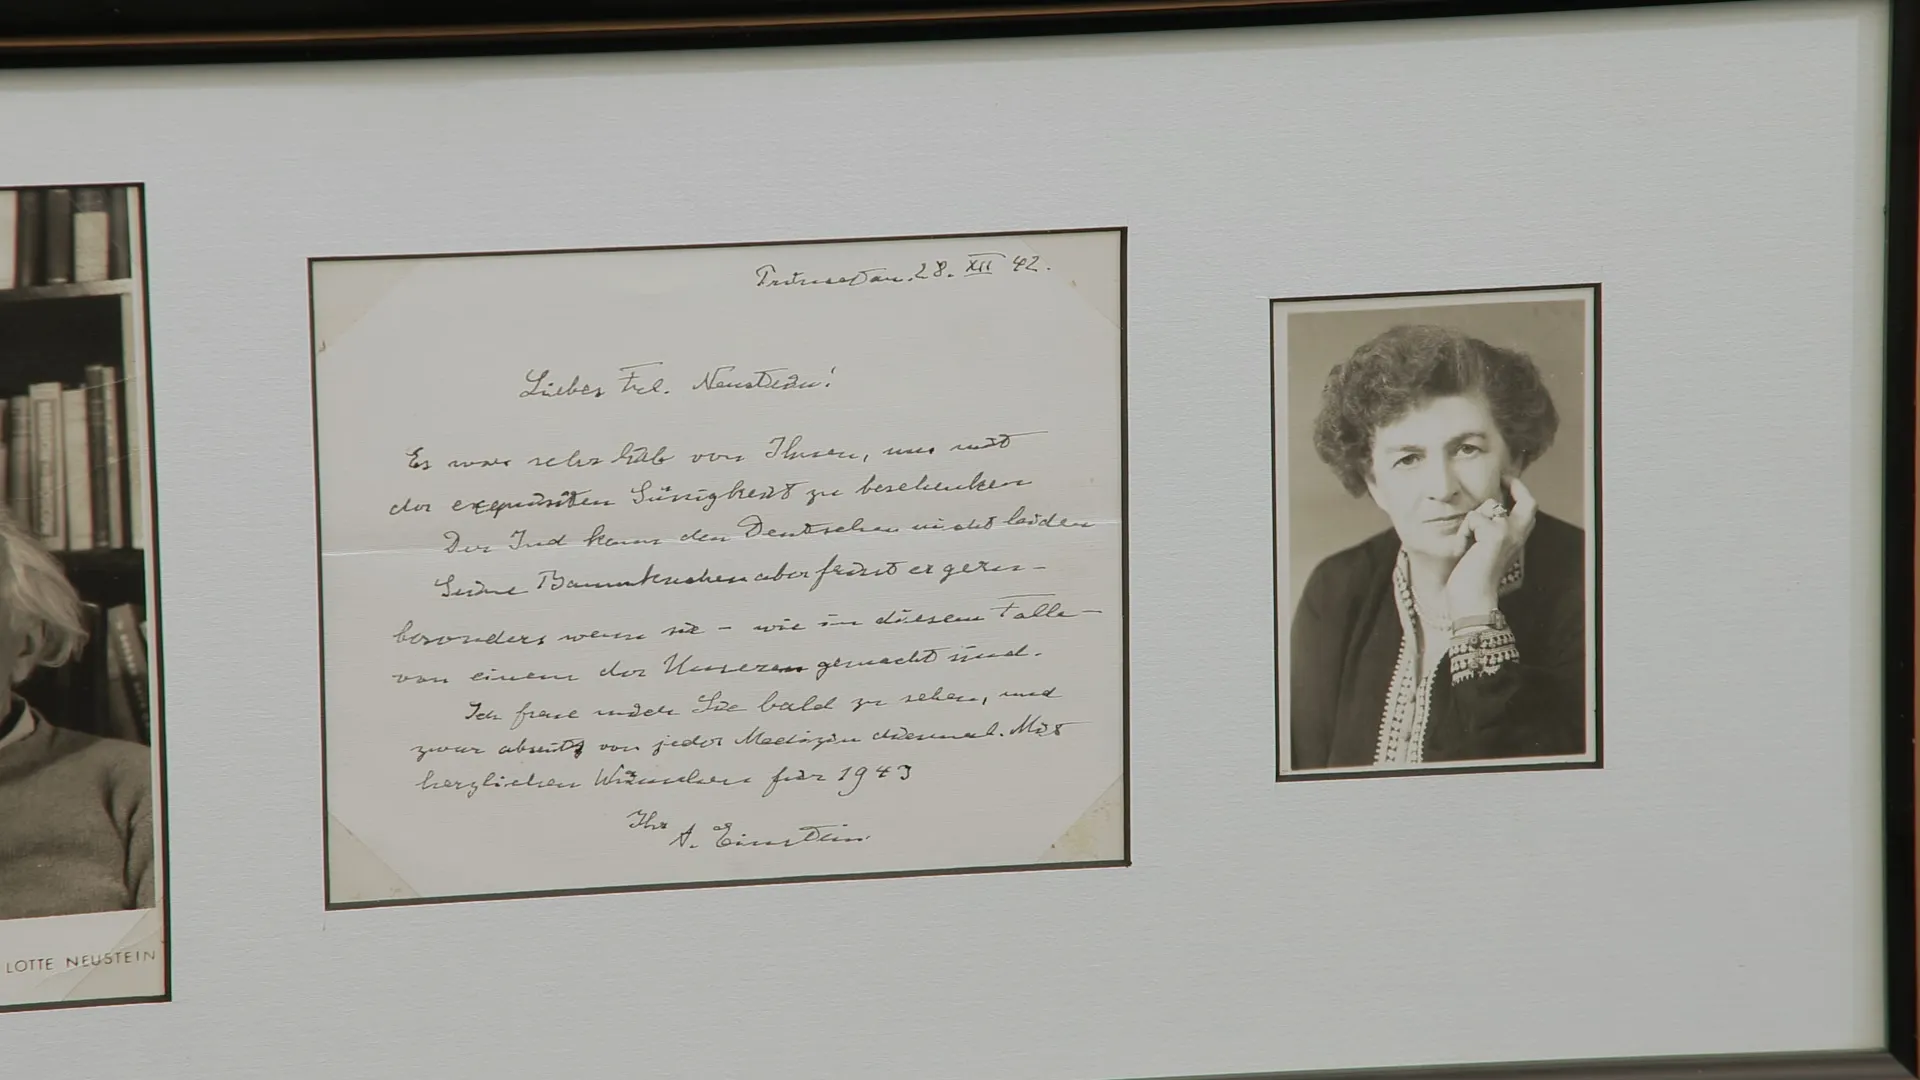 Princeton. 28. XII 42.
Liebes Frl. Neustein!
Es war sehr lieb von Ihnen, uns mit
der exquisiten Süssigkeit zu beschenken
Der Jud kann den Deutschen nicht leiden
Seine Baumkuchen aber frisst er gern –
besonders wenn sie – wie in diesem Falle –
von einem der Unseren gemacht sind.
Ich freue mich Sie bald zu sehen, und
zwar abseits von jeder Medizin diesmal. Mit
herzlichen Wünschen für 1943
Ihr
A. Einstein.
LOTTE NEUSTEIN